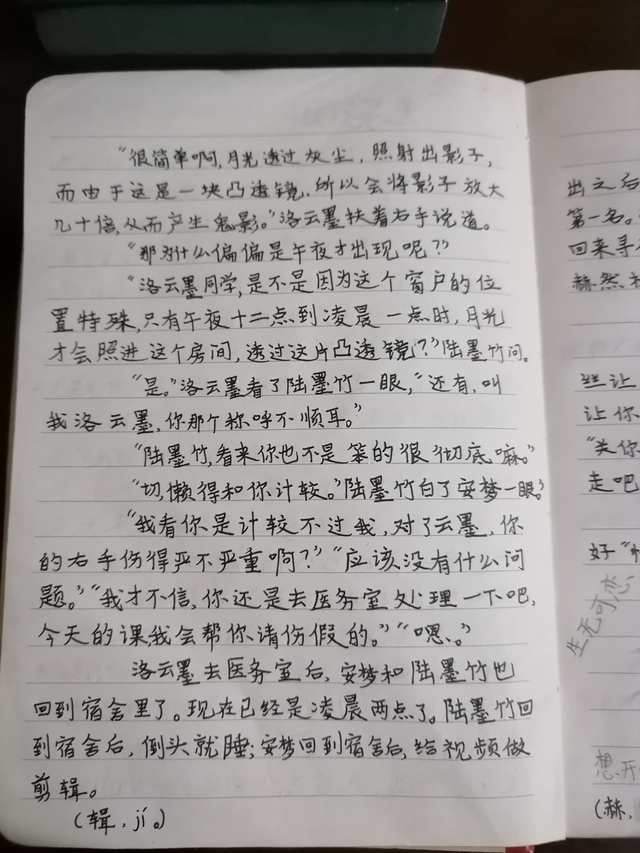 “很简单啊,月光透过灰尘,照射出影子,
而由于这是一块凸透镜,所以会将影子放大
几十倍,从而产生鬼影。”洛云墨扶着右手说道。
“那为什么偏偏是午夜才出现呢?”
“洛云墨同学,是不是因为这个窗户的位
置特殊,只有午夜十二点到凌晨一点时,月光
才会照进这个房间,透过这片凸透镜?”陆墨竹问。
“是。”洛云墨看了陆墨竹一眼,“还有,叫
我洛云墨,你那个称呼不顺耳。”
“陆墨竹,看来你也不是笨的很彻底嘛。”
“切,懒得和你计较。”陆墨竹白了安梦一眼。
“我看你是计较不过我,对了云墨,你
的右手伤得严不严重啊?”“应该没有什么问
题。”“我才不信,你还是去医务室处理一下吧,
今天的课,我会帮你请伤假的。”“嗯、。”
洛云墨去医务室后,安梦和陆墨竹也
回到宿舍里了。现在已经是凌晨两点了。陆墨竹回
到宿舍后,倒头就睡;安梦回到宿舍后,给视频做
剪辑。
(辑,jí。)
出之后
第一名。
回来寻
赫然
丝让
让你
“关你
走吧
好”
生无可恋
想开
(赫,